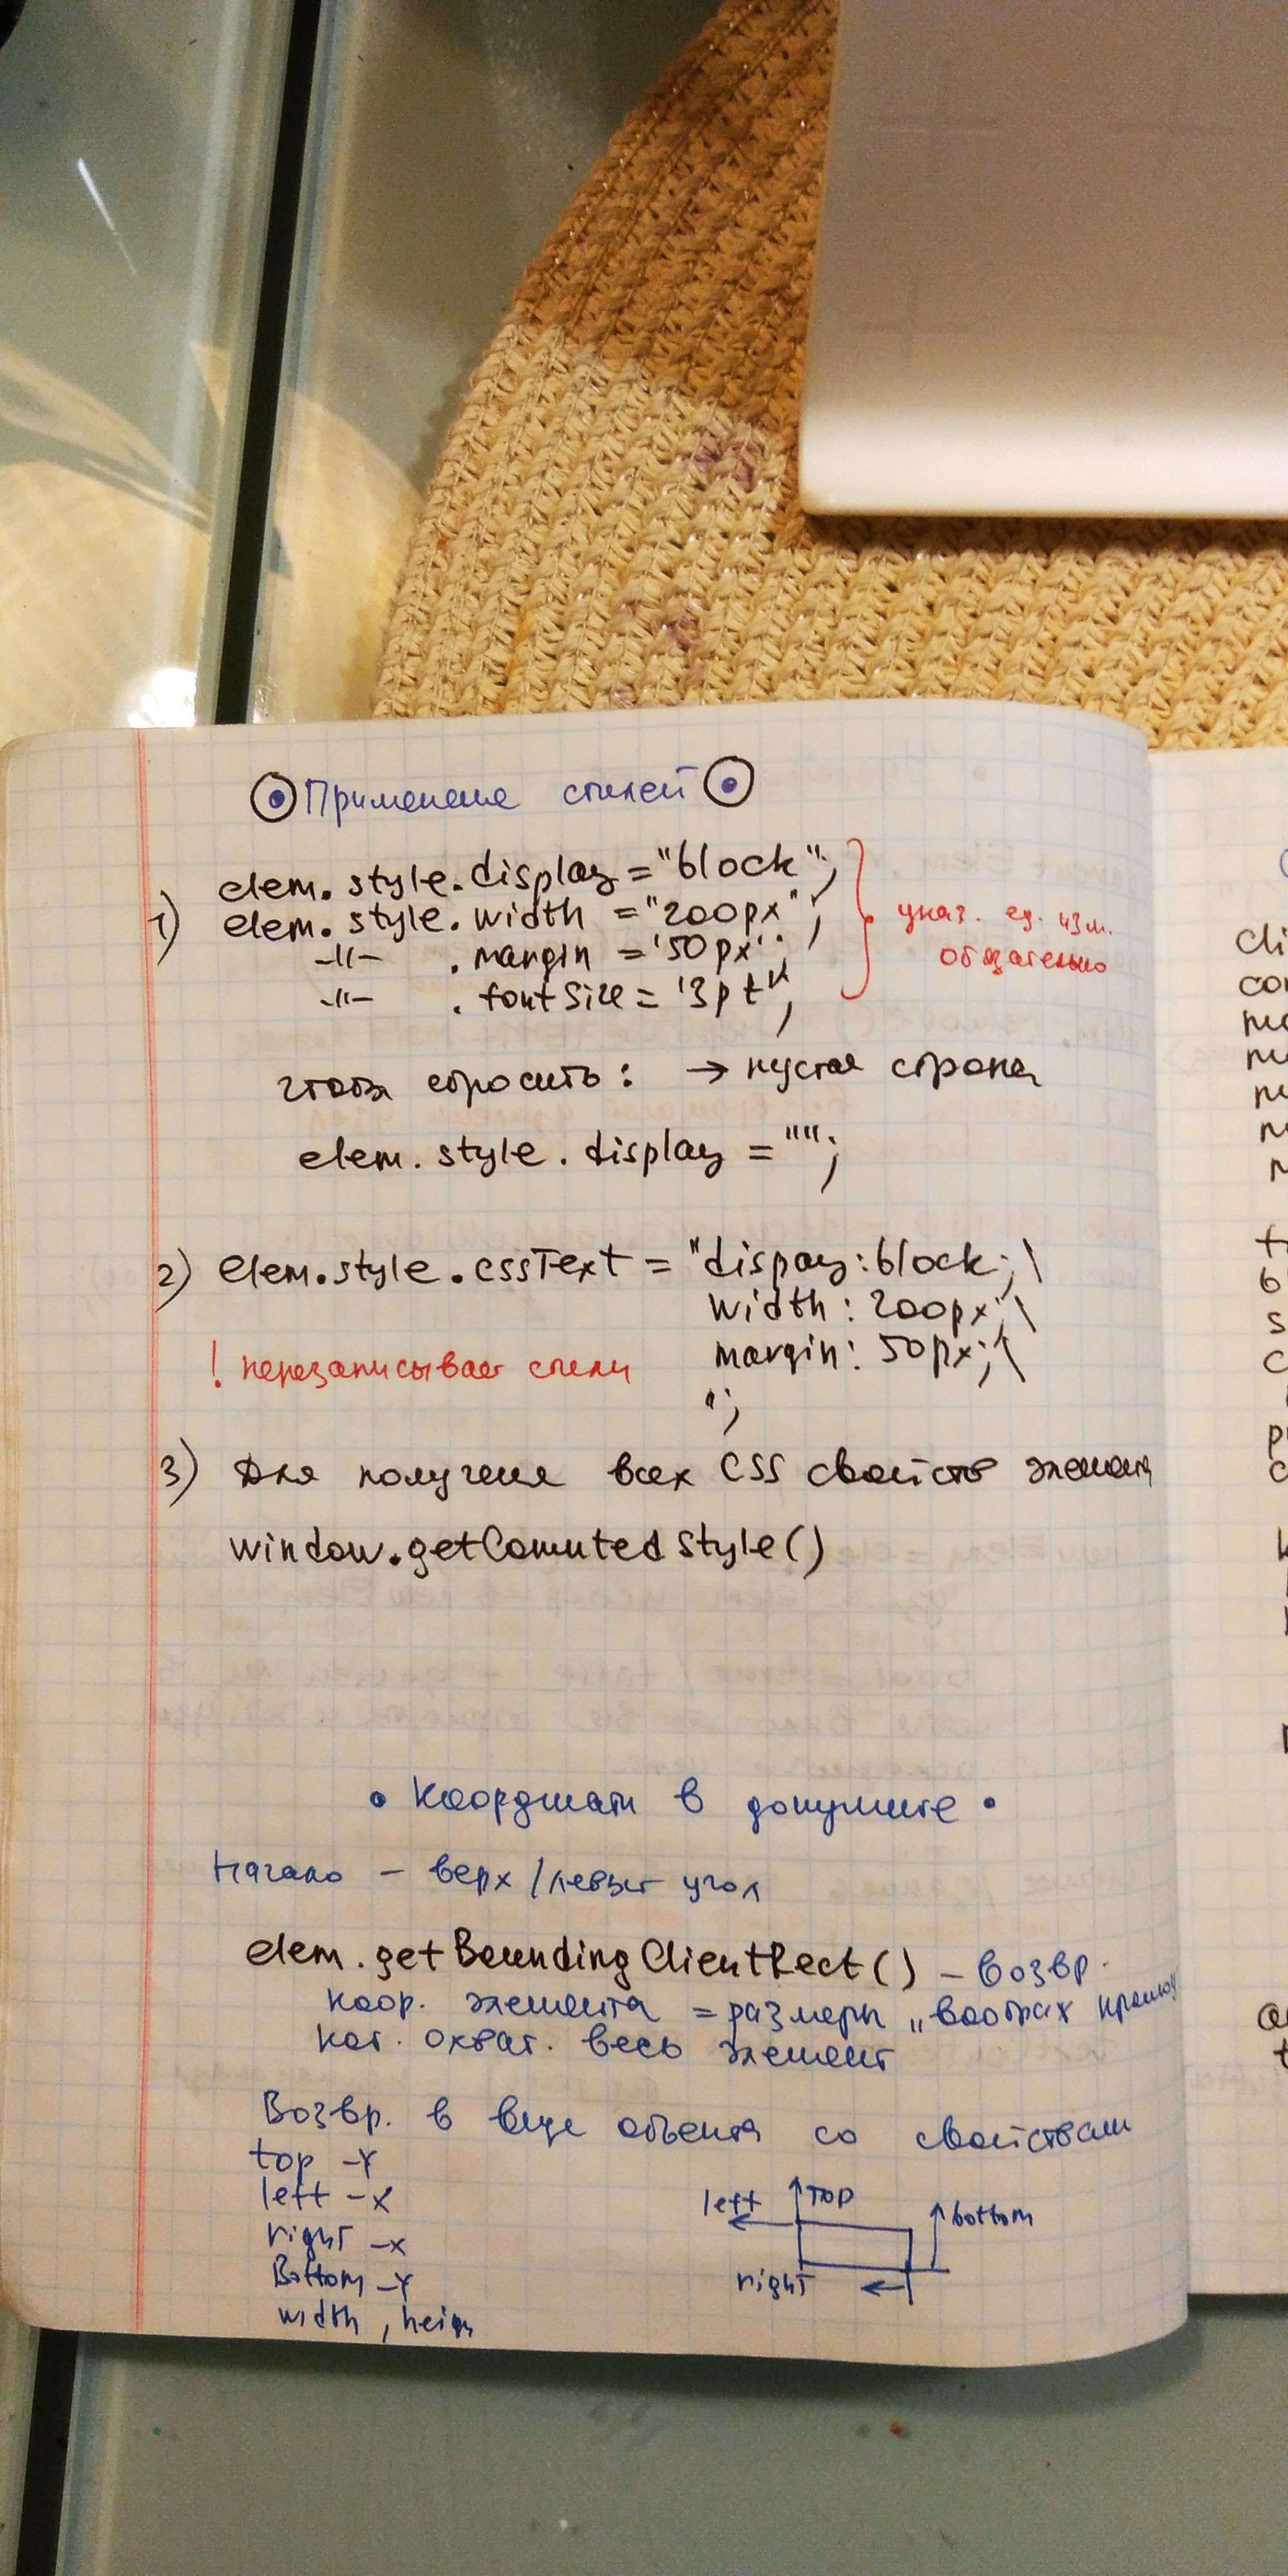 Применение стилей
elem.style.display = "block";
1) elem.style.width = "200px"; указ. ед. изм.
-"- .margin = '50px'; обязательно
-"- .fontSize = '3pt";
чтобы сбросить: → пустая строка
elem.style.display = "";
2) elem.style.cssText = "dispay:block;\
width: 200px;\
! перезаписывает стили margin: 50px;\
";
3) Для получения всех CSS свойств элемента
window.getComutedStyle()
• Координаты в документе •
Начало - верх/левый угол
elem.getBoundingClientRect() - возвр.
коор. элемента = размеры „воображ
кот. охват. весь элемент
Возвр. в виде объекта со свойствами
top - Y
left - X
right - X
Bottom - Y
width, heigh
left top bottom
right